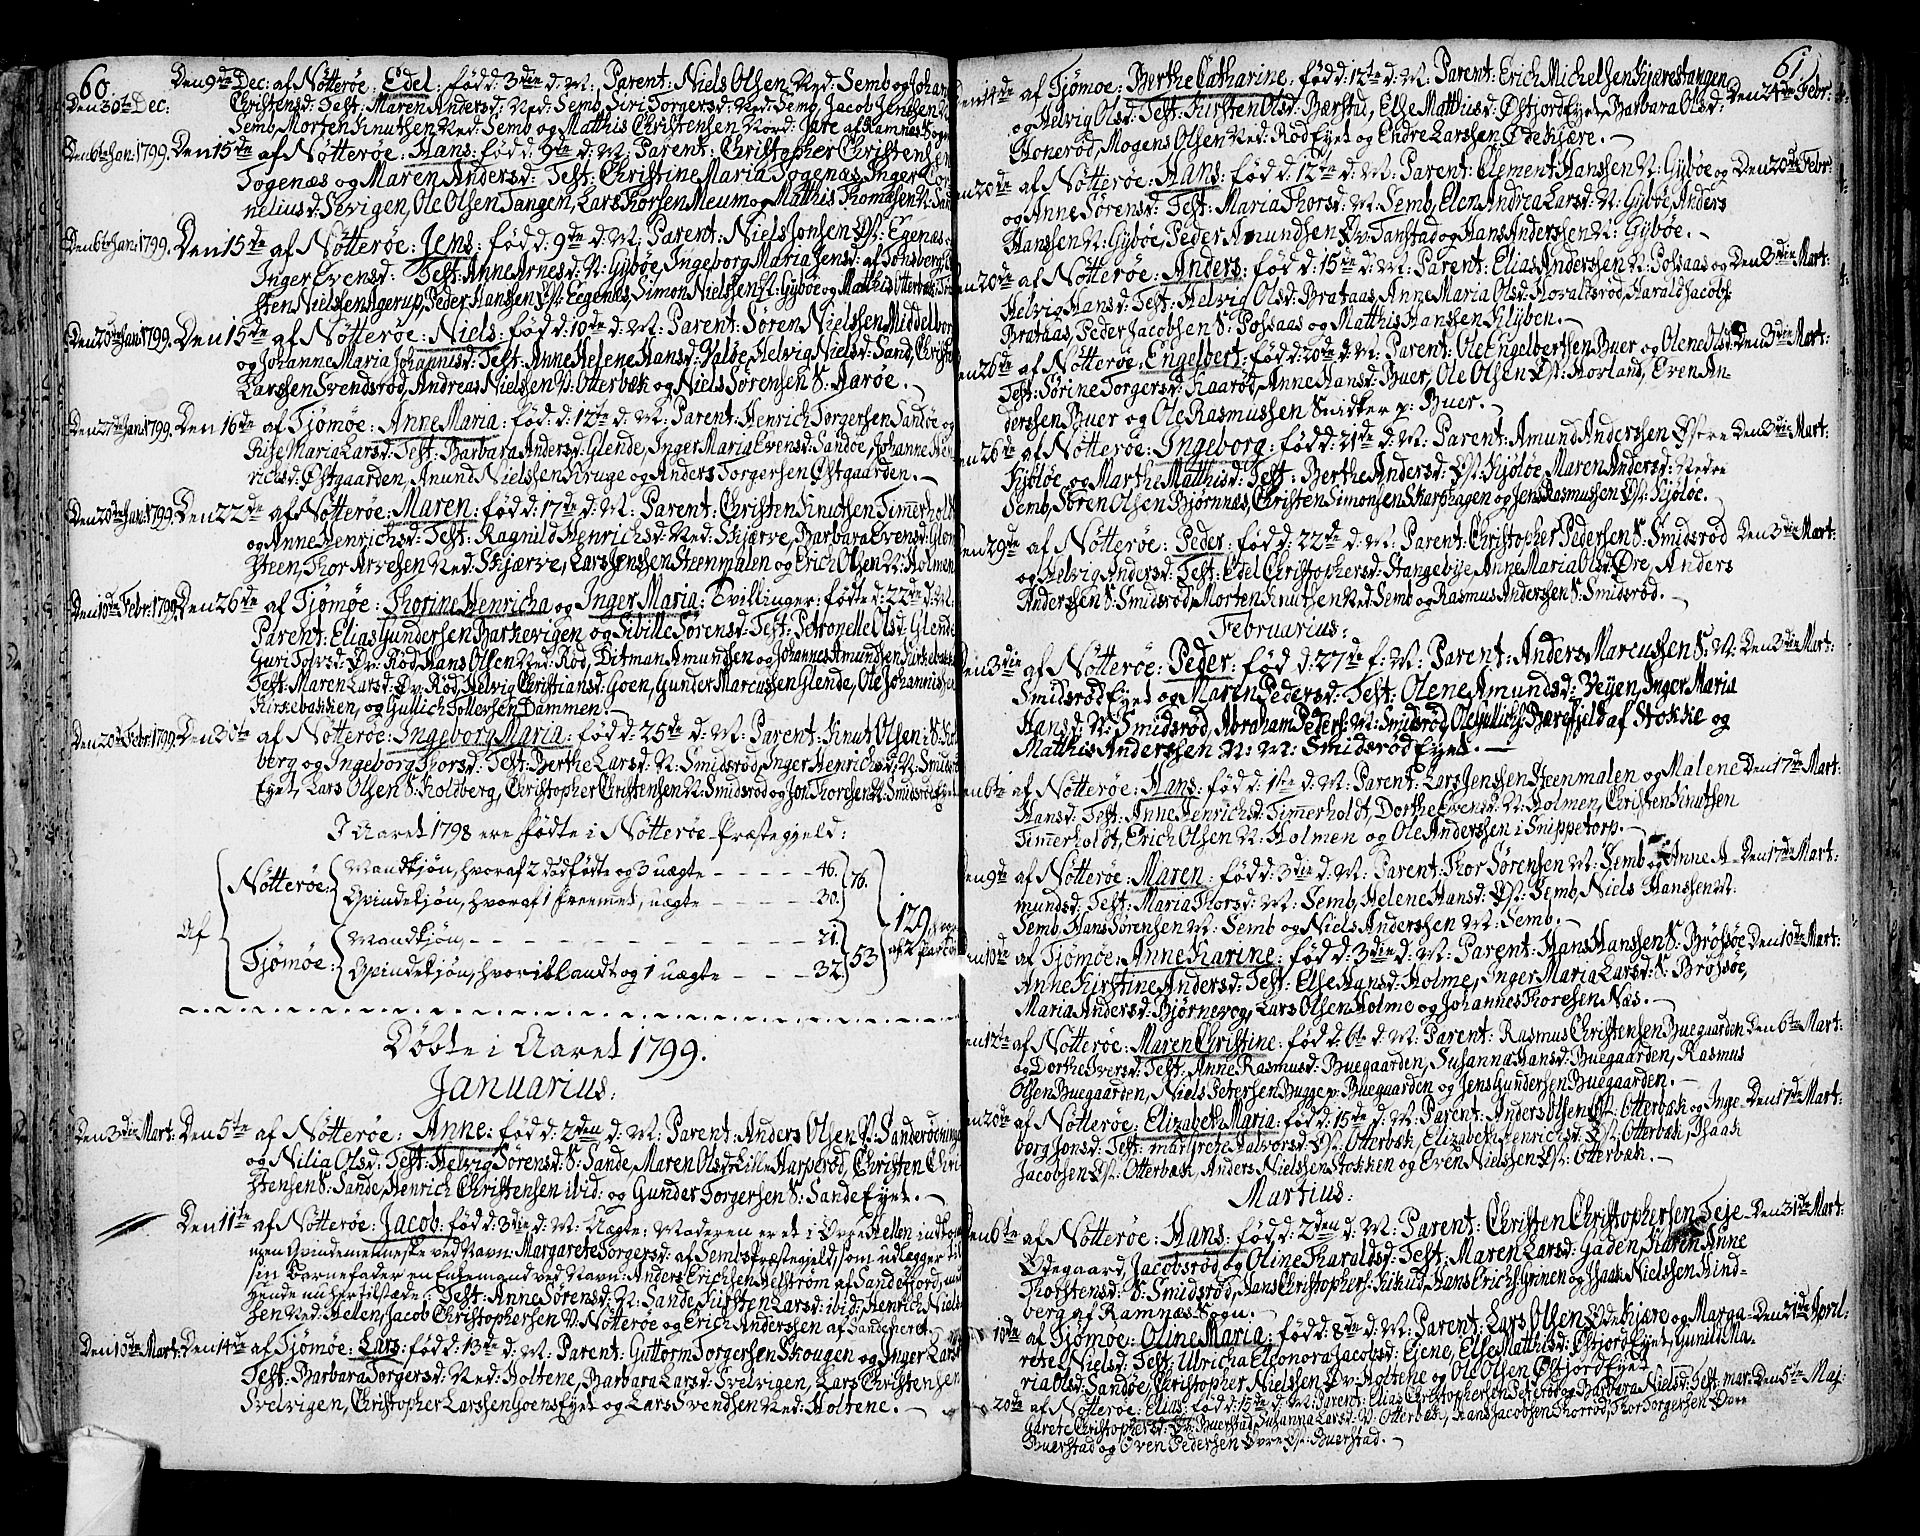 60
Den 9de Dec: af Nötteröe: Edel: född: 3die d: M: Parent: Niels Olsen Ned: Semb og Johan
Den 30te Dec: Christensd: Test: Maren Andersd: Ned: Semb, Siri Torgersd: Ned: Semb, Jacob Jenssen
Semb, Morten Knutsen Ned: Semb og Matthis Christensen Nord: Jare af Ramnes Sogn
Den 6te Jan: 1799. Den 15de af Nötteröe: Hans: född: 9de d: M: Parent: Christopher Christensen
Togenæs og Maren Andersd: Test: Christine Maria Togenæs, Inger Cor
neliusd: Sevigen, Ole Olsen Tangen, Lars Thorsen Meum og Matthis Thomasen N:
Den 6te Jan: 1799. Den 15de af Nötteröe: Jens: född: 9de d: M: Parent: Niels Jonsen Øst: Egenæs
Inger Evensd: Test: Anne Arnesd: N: Gyböe, Ingeborg Maria Jensd: af Tönsberg,
sten Nielssen Agerup, Peder Hanssen Øst: Eegenes, Simon Nielssen N: Gyböe og Matthis Otterbæk
Den 20de Jan: 1799. Den 15de af Nötteröe: Niels: född: 10de d: M: Parent: Sören Nielssen Middelbor
og Johanne Maria Johannisd: Test: Anne Helene Hansd: Valöe, Helvig Nielsd: Sand, Christ
Larssen Svendsröd, Andreas Nielssen N: Otterbæk og Niels Sörensen S: Aaröe.
Den 27de Jan: 1799. Den 16de af Tjömöe: Anne Maria: född: 12te d: M: Parent: Henrich Torgersen Sandöe og
Kise Maria Larsd: Test: Barbara Andersd: Glende, Inger Maria Evensd: Sandöe, Johanne Hen
richsd: Østgaarden, Anund Nielssen Kruge og Anders Torgersen Østgaarden.
Den 20de Jan: 1799. Den 22de af Nötteröe: Maren: född: 17de d: M: Parent: Christen Knutsen Timerholdt
og Anne Henrichsd: Test: Ragnild Henrichsd: Ned: Skjærve, Barbara Evensd: Glom
steen, Thor Arvesen Ned: Skjærve, Lars Jenssen Steenmalen og Erich Olsen N: Holmen
Den 10de Febr: 1799. Den 26de af Tjömöe: Thorine Henricha og Inger Maria: Tvillinger: födte d: 22de d: M:
Parent: Elias Gundersen Barkevigen og Sibille Sörensd: Test: Petronelle Olsd: Glende
Guri Tolvsd: Øv: Röd, Hans Olsen Ned: Röd, Ditman Amundsen og Johannes Amundsen Kirkebak
Test: Maren Larsd: Øv: Röd, Helvig Christiansd: Goen, Gunder Marcussen Glende, Ole Johannis
Kirkebakken, og Gullich Tollefsen Dammen.
Den 20de Febr: 1799. Den 30te af Nötteröe: Ingeborg Maria: född: 25te d: M: Parent: Knut Olsen S: Kol
berg og Ingeborg Thorsd: Test: Berthe Larsd: N: Smidsröd, Inger Henrichsd: N: Smidsrö
Eyet, Lars Olsen S: Koldberg, Christopher Christensen N: Smidsröd og Jon Thoresen N: Smidsröd Eyet
I Aaret 1798 ere Födte i Nötteröe Præstegjeld:
Af Nötteröe: Mandkjön, hvoraf 2 dödfödte og 3 uægte 46.
Qvindekjön, hvoraf 1 fremmet, uægte 30. 76.
Tjömöe: Mandkjön, 21.
Qvindekjön, hvoriblandt og 1 uægte 32. 53
129, hvor
af 2 par
Döbte i Aaret 1799.
Januarius:
Den 3die Mart: Den 5te af Nötteröe: Anne: född: 2den d: M: Parent: Anders Olsen N: Sanderöe
og Nilia Olsd: Test: Helvig Sörensd: S: Sande, Maren Olsd: Lille Harperöd, Christen Chri
stensen S: Sande, Henrich Christensen ibid: og Gunder Torgersen S: Sande Eyet.
Den 11te af Nötteröe: Jacob: född: 3die d: M: Uægte: Moderen er et i Øvre Hellen indkom
men Qvindemenneske ved Navn: Margarete Torgersd: af Sembs Præstegjeld, som udlægger til
sin Barnefader en Enkemand ved Navn: Anders Erichsen Helström af Sandefjord,
gende nu her tilstæde: Test: Anne Sörensd: N: Sande, Kirsten Larsd: ibid:, Henrich Niels
sen Ned: Helen, Jacob Christophersen N: Nötteröe og Erich Anderssen af Sandeherret.
Den 10de Mart: Den 14de af Tjömöe: Lars: född: 13de d: M: Parent: Guttorm Torgersen Skougen og Inger Larsd
Test: Barbara Torgersd: Ned: Holtene, Barbara Larsd: Svelvigen, Lars Christensen
Svelvigen, Christopher Larssen Goens Eyet og Lars Svendsen Ned: Holtene.
61
Den 14de af Tjömöe: Berthe Catharine: född: 12te d: M: Parent: Erich Michelsen Kjærestangen Den 24de Febr:
og Helvig Olsd: Test: Kirsten Olsd: Bærstu, Else Matthisd: Østjord Eyet, Barbara Olsd:
Honeröd, Mogens Olsen Ned: Röd Eyet og Endre Larssen Ødekjære.
Den 20de af Nötteröe: Hans: född: 12te d: M: Parent: Clement Hanssen N: Gyböe og Den 20de Febr:
og Anne Sörensd: Test: Maria Thorsd: N: Semb, Elen Andrea Larsd: N: Gyböe, Anders
Hanssen N: Gyböe, Peder Amundsen Øv: Tanstad og Hans Anderssen N: Gyböe.
Den 20de af Nötteröe: Anders: född: 15de d: M: Parent: Elias Anderssen N: Possaas og Den 3die Mart:
Helvig Hansd: Test: Helvig Olsd: Brataas, Anne Maria Olsd: Hovaltsröd, Harald Jacobs:
Brataas, Peder Jacobsen S: Possaas og Matthis Hanssen Klyben.
Den 26de af Nötteröe: Engelbert: född: 20de d: M: Parent: Ole Engelbertsen Buer og Olene Olsd: Den 3die Mart:
Test: Sörine Torgersd: Kaaröd, Anne Hansd: Buer, Ole Olsen Øst: Horland, Even An-
derssen Buer og Ole Rasmussen Snidker p: Buer.
Den 26de af Nötteröe: Ingeborg: född: 21de d: M: Parent: Amund Anderssen Østre Den 3die Mart:
Kjölöe og Marthe Matthisd: Test: Berthe Andersd: Øst: Kjölöe, Maren Andersd: Nedre
Semb, Sören Olsen Björnnæs, Christen Simonsen Skarphagen og Jens Rasmussen Øst: Kjölöe.
Den 29de af Nötteröe: Peder: född: 22de d: M: Parent: Christopher Pedersen S: Smidsröd Den 3die Mart:
og Helvig Andersd: Test: Edel Christophersd: Stangebye, Anne Maria Olsd: Øre, Anders
Anderssen S: Smidsröd, Morten Knutsen Ned: Semb og Rasmus Anderssen S: Smidsröd.
Februarius:
Den 3die af Nötteröe: Peder: född: 27de f: M: Parent: Anders Marcussen S: M: Den 3die Mart:
Smidsröd Eyet og Maren Pedersd: Test: Olene Amundsd: Veyen, Inger Maria
Hansd: N: Smidsröd, Abraham Peders: M: Smidsröd, Ole Gullichs: Bærefjeld af Stokke og
Matthis Anderssen N: M: Smidsröd Eyet.
Den 6te af Nötteröe: Hans: född: 1ste d: M: Parent: Lars Jenssen Steenmalen og Malene Den 17de Mart:
Hansd: Test: Anne Henrichsd: Timerholdt, Dorthe Evensd: N: Holmen, Christen Knutsen
Timerholdt, Erich Olsen N: Holmen og Ole Anderssen i Snippetorp.
Den 9de af Nötteröe: Maren: född: 3die d: M: Parent: Thor Sörensen N: Semb og Anne A- Den 17de Mart:
mundsd: Test: Maria Thorsd: N: Semb, Helene Hansd: Øst: Semb, Niels Hanssen N:
Semb, Hans Sörensen N: Semb og Niels Anderssen N: Semb.
Den 10de af Tjömöe: Anne Karine: född: 3die d: M: Parent: Hans Hanssen S: Brössöe Den 10de Mart:
Anne Kirstine Andersd: Test: Else Hansd: Holme, Inger Maria Larsd: S: Brössöe,
Maria Andersd: Björnevog, Lars Olsen Holme og Johannes Thoresen Næs.
Den 12te af Nötteröe: Maren Christine: född: 6te d: M: Parent: Rasmus Christensen Buegaarden Den 6te Mart:
og Dorthe Iversd: Test: Anne Rasmusd: Buegaarden, Susanna Hansd: Buegaarden, Rasmus
Olsen Buegaarden, Niels Petersen Bugge p: Buegaarden og Jens Gundersen Buegaarden.
Den 20de af Nötteröe: Elizabeth Maria: född: 15de d: M: Parent: Anders Olsen Øst: Otterbæk og Inge- Den 17de Mart:
borg Jonsd: Test: Margrete Halvorsd: Øst: Otterbæk, Elizabeth Henrichsd: Øst: Otterbæk, Isaak
Jacobsen Øst: Otterbæk, Anders Nielssen Stokken og Even Nielssen Øst: Otterbæk.
Martius:
Den 6te af Nötteröe: Hans: född: 2den d: M: Parent: Christen Christophersen Teje- Den 31te Mart:
Ødegaard, Jacobsröd, og Oline Tharaldsd: Test: Maren Larsd: Gaden, Karen Anne
Thorstensd: S: Smidsröd, Hans Christophers: Kikud, Hans Erichs: Grinen og Isaak Nielssen Hind-
berg af Ramnæs Sogn.
10de af Tjömöe: Oline Maria: född: 8de d: M: Parent: Lars Olsen Ødekjære og Marga- Den 21de April:
rete Nielsd: Test: Ulricha Eleonora Jacobsd: Eiene, Else Matthisd: Østjord Eyet, Gunild Ma-
ria Olsd: Sandöe, Christopher Nielssen Øv: Holtene og Ole Olsen Østjord Eyet
20de af Nötteröe: Elias: född: 15de d: M: Parent: Elias Christophersen Teieröd og Barbara Nielsd: Test: Mar- Den 5te Maj:
garete Christophersd: Øv: Buerstad, Susanna Larsd: N: Otterbæk, Hans Jacobsen Thorröd, Thor Torgersen Øvre
Buerstad og Even Pedersen Øvre Øst: Buerstad.